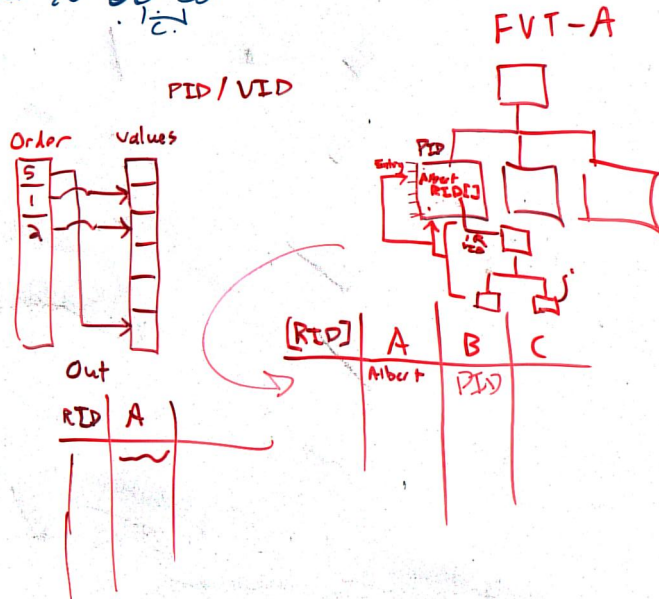 FVT-A
PID/VID
Order values
5
1
2
PID
Entry
Albert
RID[]
VID
[RID] A B C
Albert PID
Out
RID A